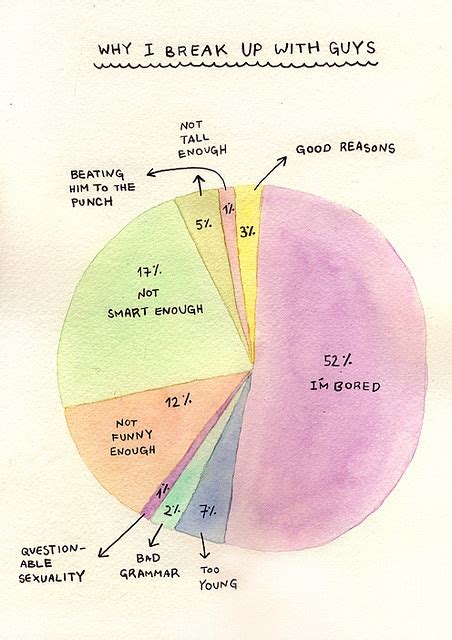 WHY I BREAK UP WITH GUYS
NOT
TALL
ENOUGH
GOOD REASONS
BEATING
HIM TO THE
PUNCH
5%
1%
3%
17%
NOT
SMART ENOUGH
52%
I'M BORED
12%
NOT
FUNNY
ENOUGH
1%
2%
7%
QUESTION-
ABLE
SEXUALITY
BAD
GRAMMAR
TOO
YOUNG